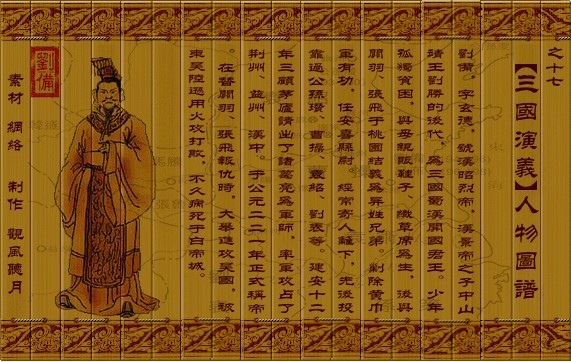 之十七
【三國演義】人物圖譜
劉備，字玄德，號漢昭烈帝，漢景帝之子中山
靖王劉勝的後代，為三國蜀漢開國君王。少年
孤獨貧困，與母親販鞋子﹑織草席為生，後與
關羽、張飛于桃園結義為異姓兄弟。剿除黃巾
軍有功，任安喜縣尉。經常寄人籬下，先後投
靠過公孫瓚、曹操、袁紹、劉表等。建安十二
年三顧茅廬請出了諸葛亮為軍師，率軍攻占了
荊州、益州、漢中。于公元二二一年正式稱帝
。在替關羽、張飛報仇時，大舉進攻吳國，被
東吳陸遜用火攻打敗，不久病死于白帝城。
劉備
素材 網絡 制作 觀風聽月